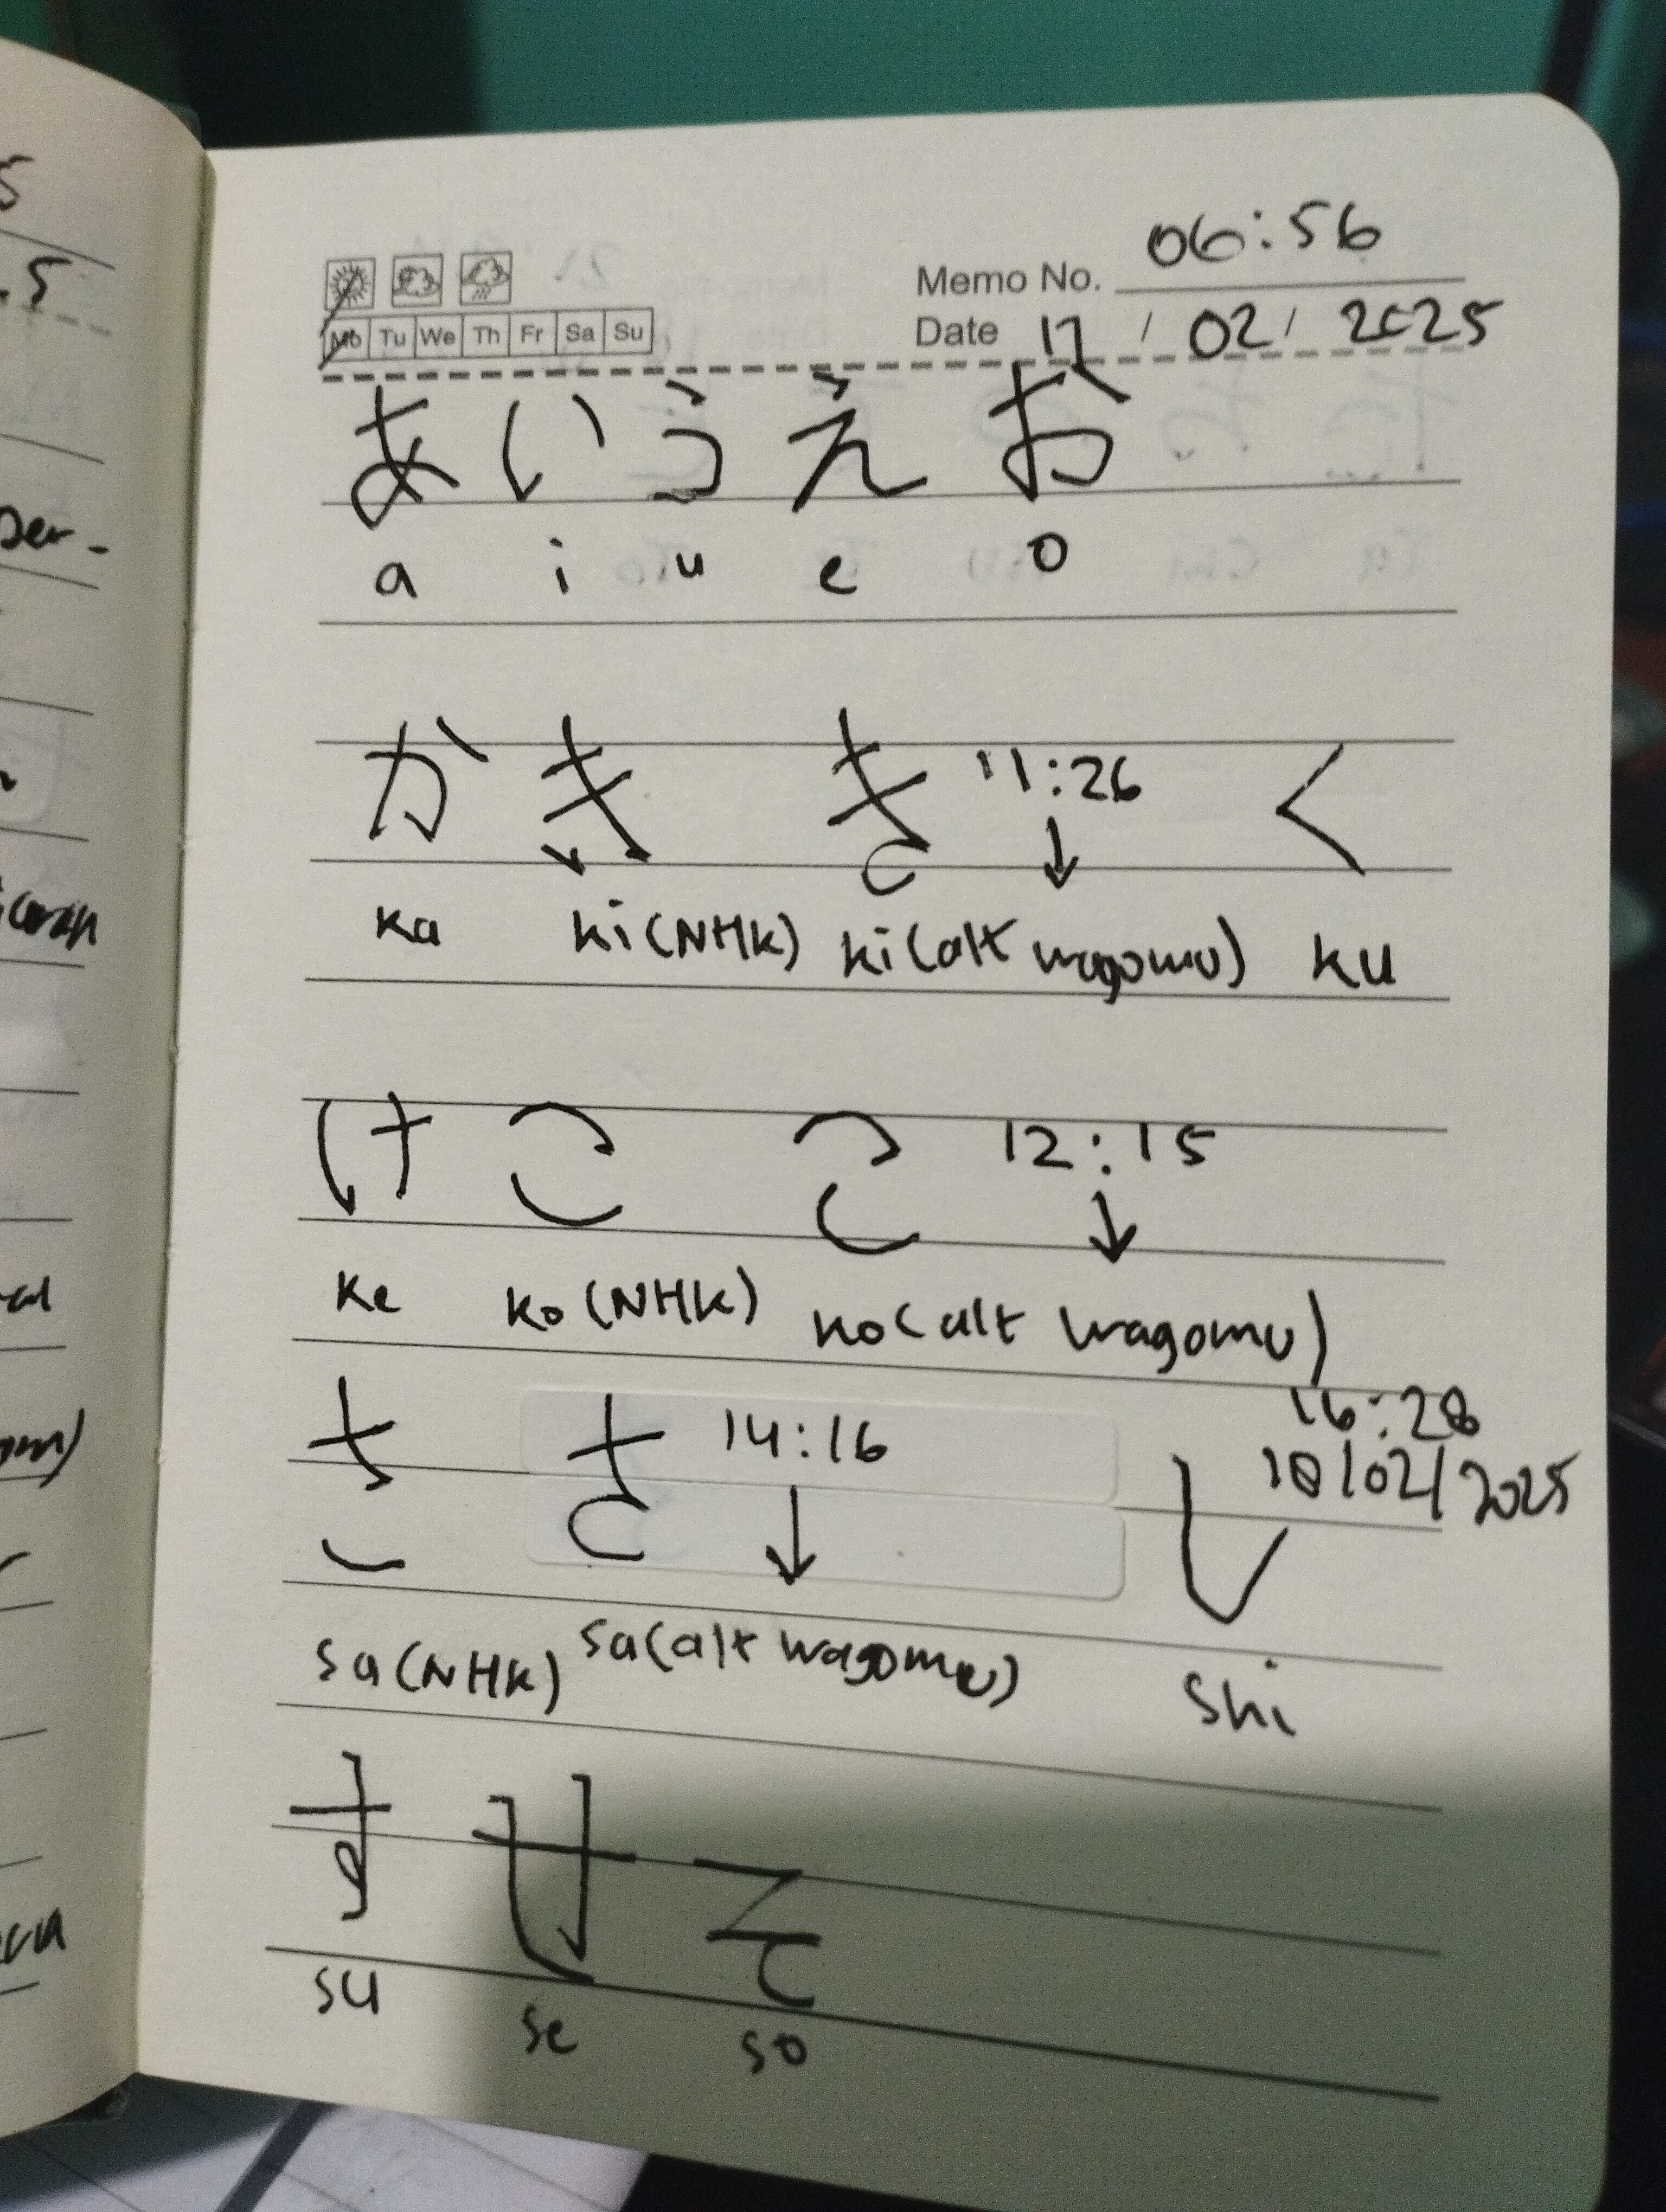 Memo No. 06:56
Mo Tu We Th Fr Sa Su
Date 17 / 02 / 2025
あいうえお
a i u e o
か き き 11:26 く
ka ki (NHK) ki (alt wagomu) ku
け こ こ 12:15
ke ko (NHK) ko (alt wagomu)
さ さ 14:16 し 16:28
18/02/2025
sa (NHK) sa (alt wagomu) shi
す せ そ
su se so